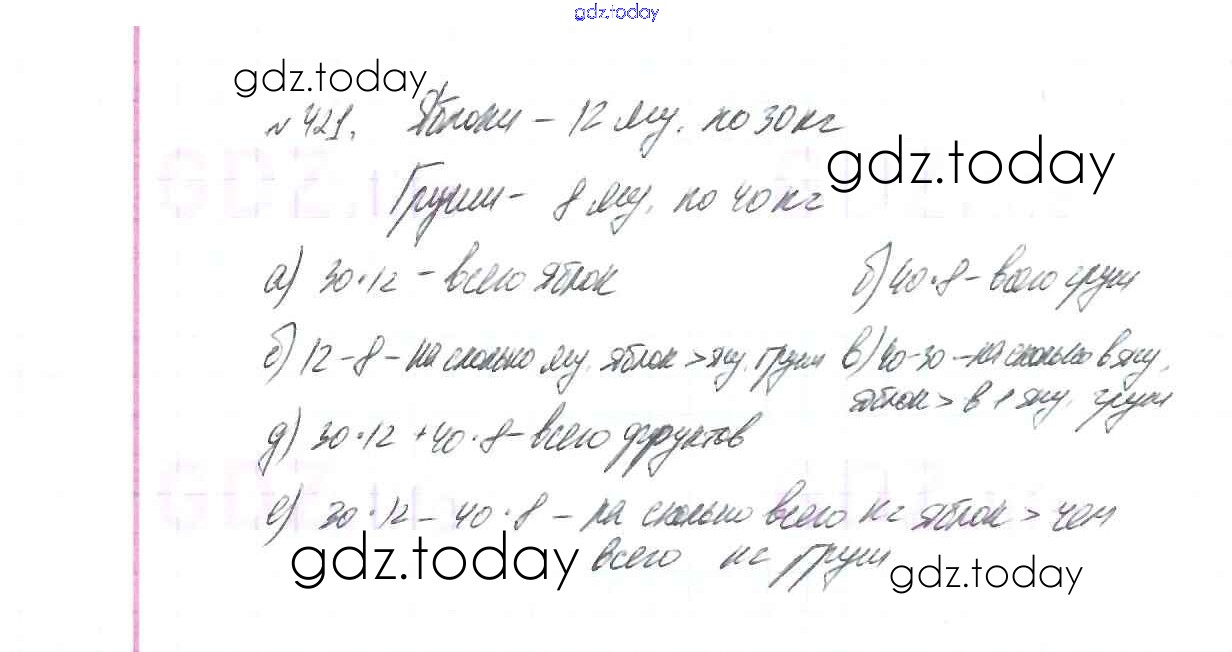 gdz.today
gdz.today
№ 421. Яблоки – 12 ящ. по 30 кг
gdz.today
Груши – 8 ящ. по 40 кг
а) 30·12 – всего яблок б) 40·8 – всего груш
б) 12 – 8 – на сколько ящ. яблок > ящ. груш в) 40-30 – на сколько в ящ.
яблок > в 1 ящ. груш
д) 30·12 + 40·8 – всего фруктов
е) 30·12 – 40·8 – на сколько всего кг яблок > чем
gdz.today всего кг груш gdz.today